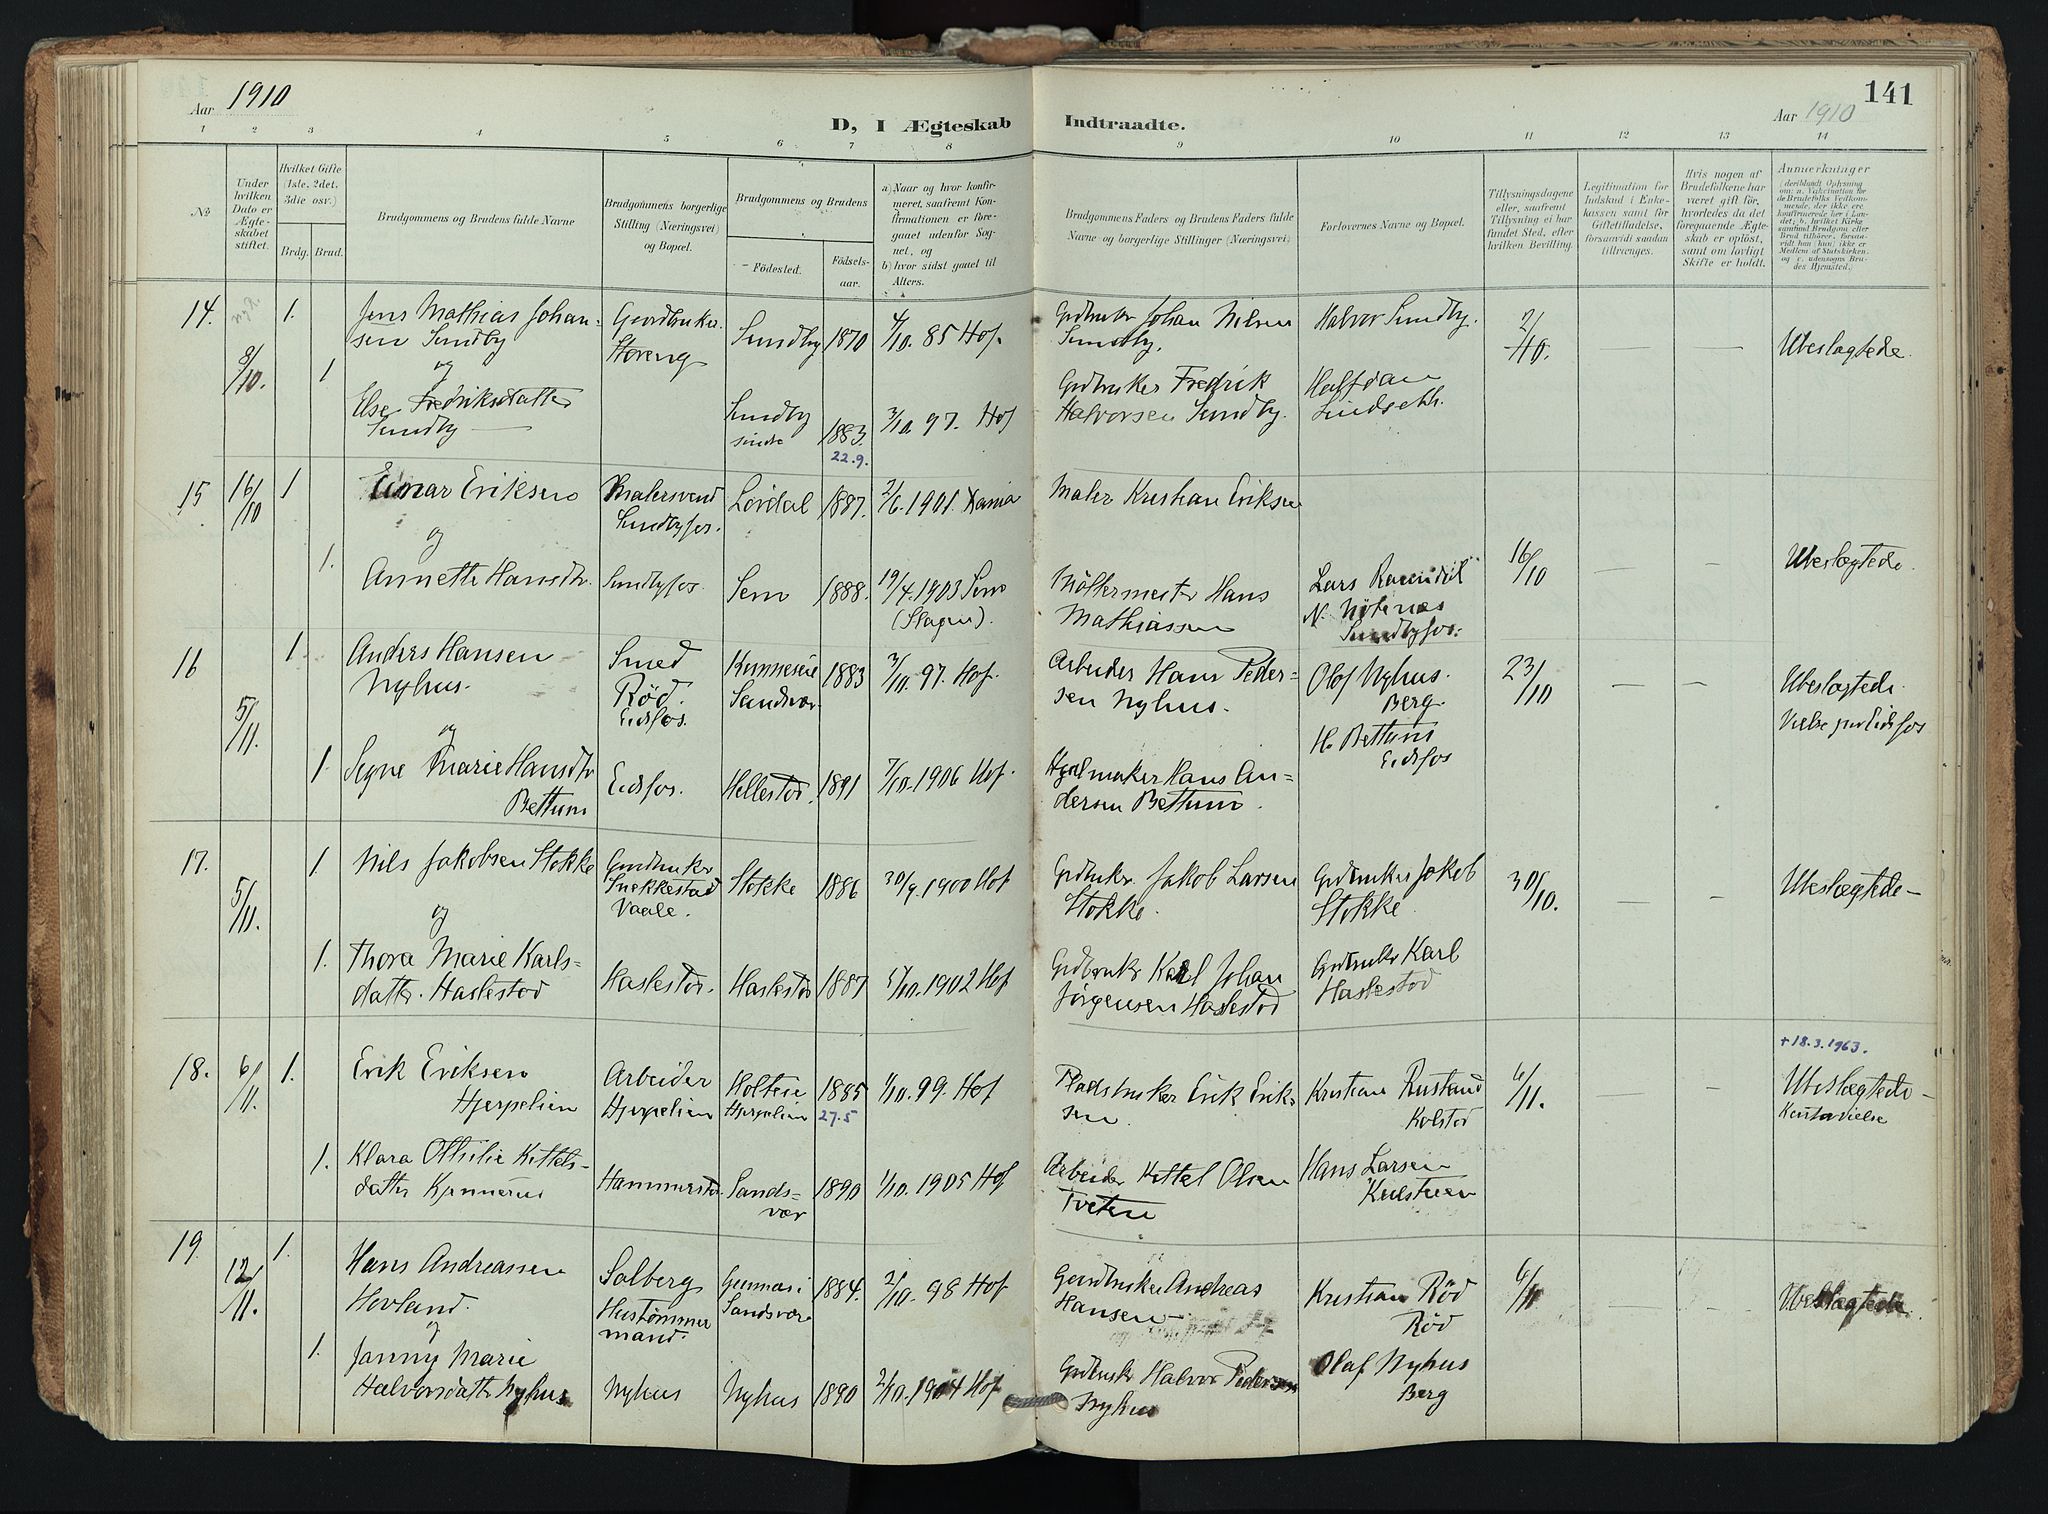 Aar 1910
D, I Ægteskab Indtraadte.
141
Aar 1910
1 2 3 4 5 6 7 8 9 10 11 12 13 14
№
Under hvilken Dato er Ægteskabet stiftet.
Hvilket Gifte (1ste, 2det, 3die osv.)
Brdg. Brud.
Brudgommens og Brudens fulde Navne
Brudgommens borgerlige Stilling (Næringsvei) og Bopæl.
Brudgommens og Brudens
Födested.
Födsels-aar.
a) Naar og hvor konfirmeret, saafremt Konfirmationen er foregaaet udenfor Sognet, og
b) hvor sidst gaaet til Alters.
Brudgommens Faders og Brudens Faders fulde Navne og borgerlige Stillinger (Næringsvei)
Forlovernes Navne og Bopæl.
Tillysningsdagene eller, saafremt Tillysning ei har fundet Sted, efter hvilken Bevilling.
Legitimation for Indskud i Enkekassen samt for Giftetilladelse, forsaavidt saadan tiltrænges.
Hvis nogen af Brudefolkene har været gift för, hvorledes da det foregaaende Ægteskab er oplöst, samt om lovligt Skifte er holdt.
Anmærkninger
14. 8/10. 1. Jens Mathias Johan-
sen Sundby
Gaardbruker
Storeng
Sundby 1870 4/10. 85 Hof.
Grdbruker Johan Nilsen
Sundby.
Halvor Sundby.
2/10.
Ubeslægtede.
og
1 Else Fredriksdatter
Sundby
Sundby
søndre
1883.
22.9.
3/10. 97. Hof
Grdbruker Fredrik
Halvorsen Sundby.
Halfdan
Lindseth.
15 16/10 1 Einar Eriksen
Malersvend
Sundbyfos.
Lördal 1887. 2/6. 1901. Xania
Maler Kristian Eriksen
og
1. Annette Hansdtr. Sundbyfos. Sem 1888. 19/4. 1903 Sem
(Slagen).
Möllermester Hans
Mathiassen
Lars
N.
Sundbyfos.
16/10
Ubeslægtede.
16 5/11. 1 Anders Hansen
Nyhus.
Smed
Röd.
Eidsfos.
Sandsvær. 1883 3/10. 97. Hof.
Arbeider Hans Peder-
sen Nyhus.
Olof Nyhus.
Berg.
23/10
Ubeslægtede.
Vielse paa Eidsfos
og
1. Signe Marie Hansdtr
Bettum
Eidsfos. Hillestad. 1891 7/10. 1906 Hof.
Hjulmaker Hans An-
dersen Bettum.
H. Bettum
Eidsfos
17. 5/11. 1. Nils Jakobsen Stokke
Gaardbruker
Snekkestad
Vaale.
Stokke 1886 30/9. 1900 Hof
Grdbruker Jakob Larsen
Stokke.
Grdbruker Jakob
Stokke.
30/10.
Ubeslægtede
og
1. Thora Marie Karls-
datter. Haslestad
Haslestad. Haslestad 1887 5/10. 1902 Hof
Grdbruker Karl Johan
Jörgensen Haslestad
Grdbruker Karl
Haslestad
18. 6/11. 1. Erik Eriksen
Hjerpelien
Arbeider
Hjerpelien
Holteie
Hjerpelien
1885
27.5
1/10. 99. Hof
Pladsbruker Erik Erik-
sen.
Kristian Rustand
Kolstad
6/11.
+ 18.3.1963.
Ubeslægtede
Kirkevielse
1. Klara Othilie Kittels-
datter
Hammerstad. Sands-
vær
1890 1/10. 1905 Hof
Arbeider Kittel Olsen
Tveten
Hans Larsen
19. 12/11. 1. Hans Andreassen
Hovland.
Solberg
Hustømmer
mand.
Sandsvær
1884. 2/10. 98 Hof
Gaardbruker Andreas
Hansen
Kristian Röd
Röd
6/11
Ubeslægtede.
og
1. Janny Marie
Halvorsdatter Nyhus
Nyhus Nyhus 1890 2/10. 1904 Hof
Grdbruker Halvor Pedersen
Nyhus
Olaf Nyhus
Berg